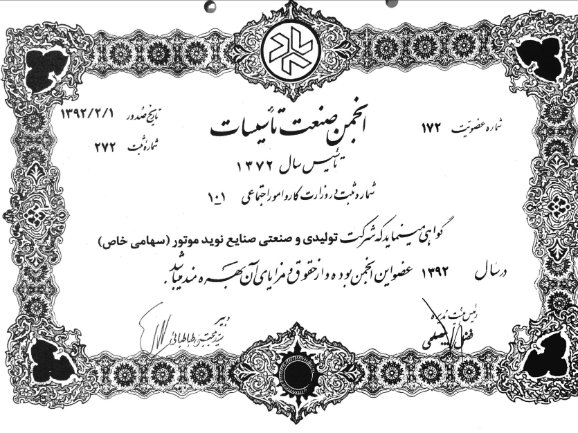 انجمن صنعت تأسیسات
شماره عضویت ۱۷۲
تاریخ صدور ۱۳۹۲/۲/۱
شماره ثبت ۲۷۲
تأسیس سال ۱۳۷۲
شماره ثبت در وزارت کار و امور اجتماعی ۱-۱۰
گواهی مینماید که شرکت تولیدی و صنعتی صنایع نوید موتور (سهامی خاص)
در سال ۱۳۹۲ عضو این انجمن بوده و از حقوق و مزایای آن بهره مند میباشد.
رئیس هیئت مدیره
دبیر
سید مجتبی طباطبائی